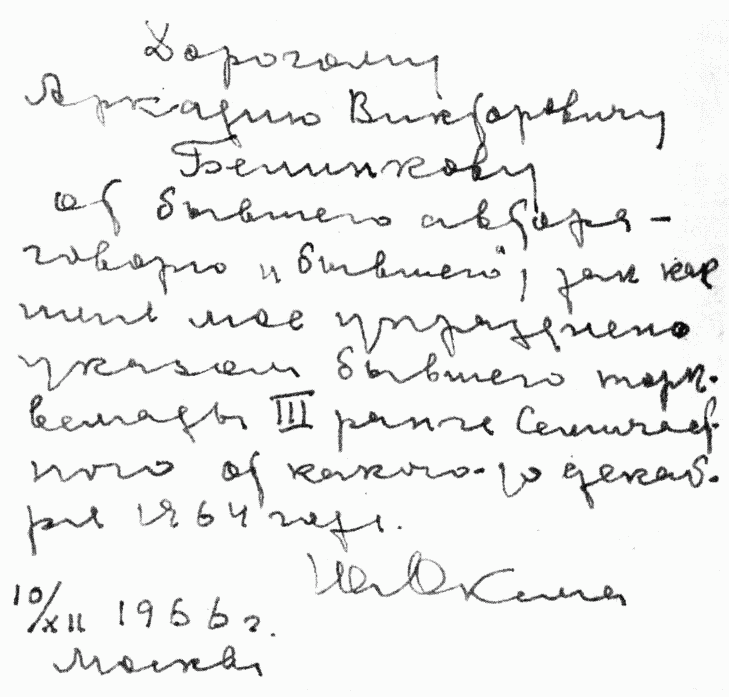 Дорогому
Аркадию Викторовичу
Белинкову
от бывшего автора –
говорю „бывшего", так как
имя мое упразднено
указом бывшего торк-
вемады III ранга Семичаст-
ного от какого-то декаб-
ря 1964 года.
Юл
10/XII 1966 г.
Москва